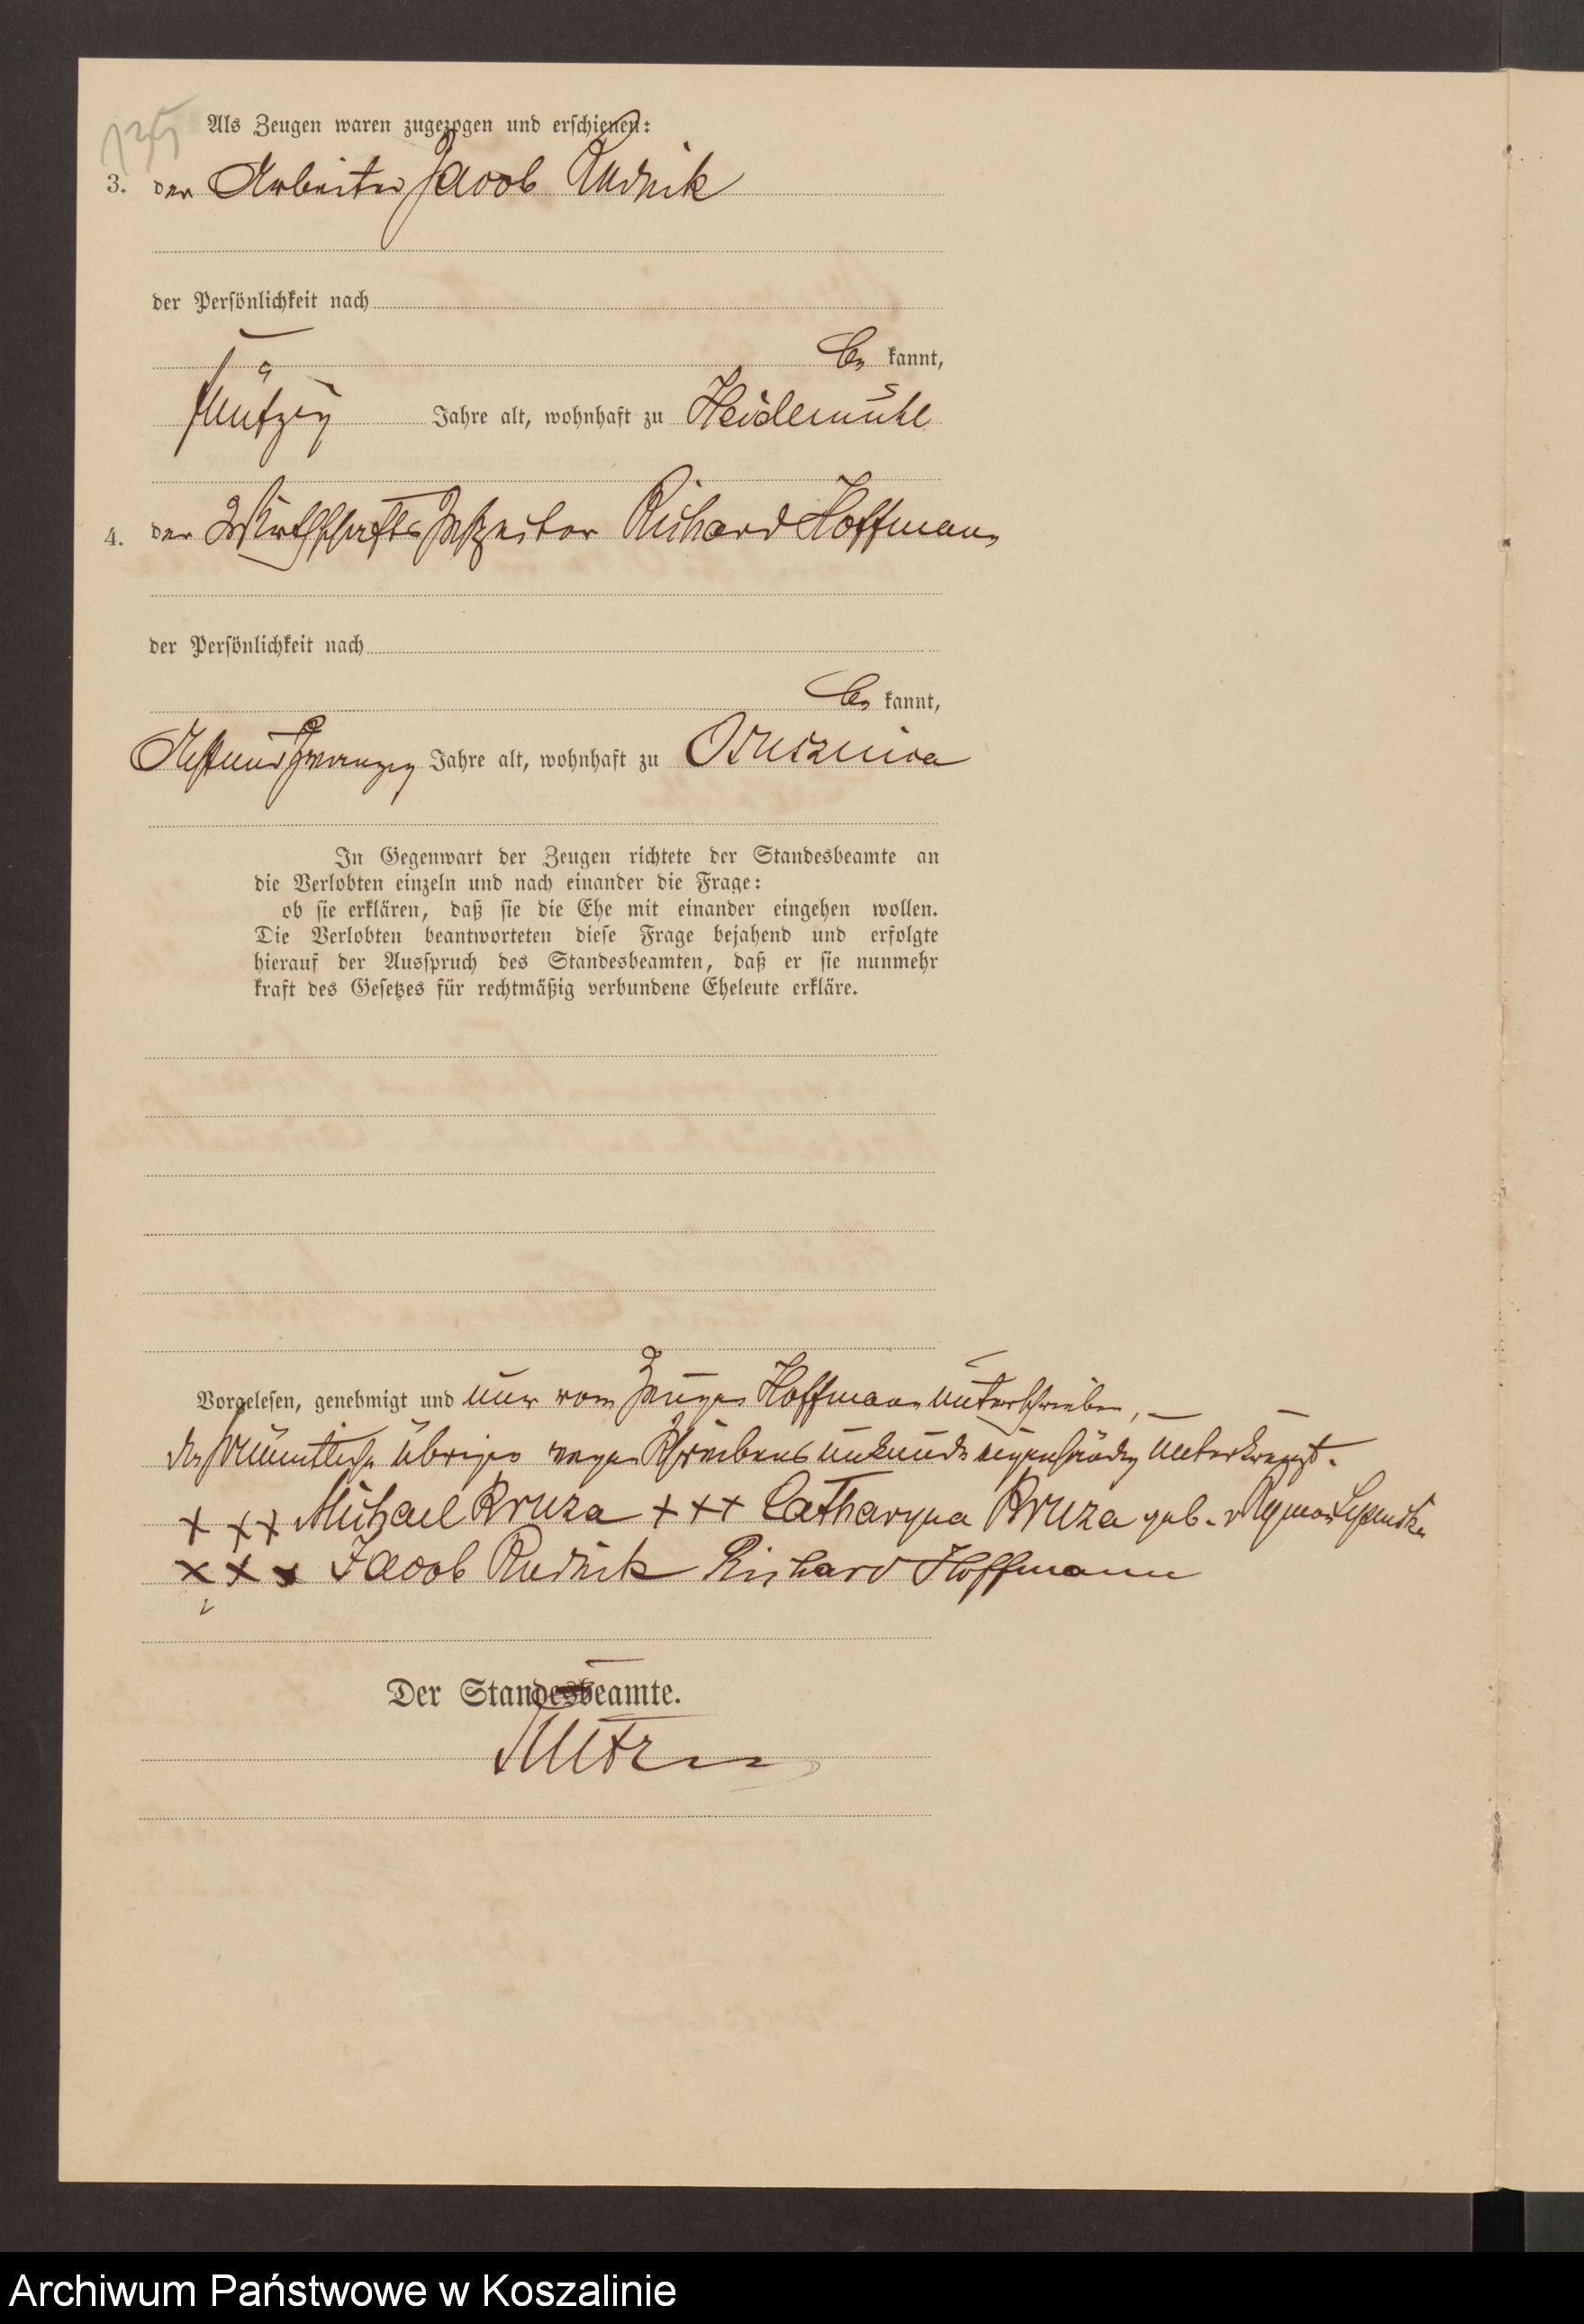 135
Als Zeugen waren zugezogen und erschienen:
3. der Arbeiter Jacob Rudnik
der Persönlichkeit nach
be kannt,
fünfzig Jahre alt, wohnhaft zu Heidemühl
4. der Wirthschafts Inspector Richard Hoffmann
der Persönlichkeit nach
be kannt,
Acht und zwanzig Jahre alt, wohnhaft zu Osusznica
In Gegenwart der Zeugen richtete der Standesbeamte an
die Verlobten einzeln und nach einander die Frage:
ob sie erklären, daß sie die Ehe mit einander eingehen wollen.
Die Verlobten beantworteten diese Frage bejahend und erfolgte
hierauf der Ausspruch des Standesbeamten, daß er sie nunmehr
kraft des Gesetzes für rechtmäßig verbundene Eheleute erkläre.
Vorgelesen, genehmigt und nur vom Zeugen Hoffmann unterschrieben,
sämmtliche übrigen wegen Schreibensunkunde eigenhändig unterkreuzt.
+ + + Michael Bruza + + + Catharyna Bruza geb. v
+ + + Jacob Rudnik Richard Hoffmann
Der Standesbeamte.